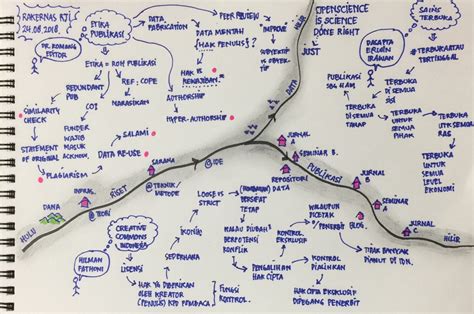 RAKERNAS RJI
24.08.2018
ETIKA
PUBLIKASI
DR. ROMANO
EDITOR
DATA
FABRICATION
PEER REVIEW
DATA MENTAH
(HAK PENULIS?)
HAK VS
KEWAJIBAN
IMPROVE
SUBYEKTIF VS
OBYEKTIF
ETIKA = ROH PUBLIKASI
REF: COPE
NARASIKAN
AUTHORSHIP
HYPER-AUTHORSHIP
REDUNDANT
PUB
COI
FUNDER
WAJIB
MASUK
ACKNOW.
SIMILARITY
CHECK
STATEMENT
OF ORIGINAL
PLAGIARISM
SALAMI
DATA RE-USE
OPENSCIENCE
IS SCIENCE
DONE RIGHT
JUST
HILIR
DATA
SAINS
TERBUKA
#TERBUKA ATAU
TERTINGGAL
DASAPTA
ERWIN
IRAWAN
PUBLIKASI
SBG HAM
TERBUKA
DI SEMUA
TAHAP
TERBUKA
UNTUK
SEMUA
PIHAK
TERBUKA
UTK SEMUA
TERBUKA
UNTUK
SEMUA
LEVEL
EKONOMI
HULU
DANA
INFRAS.
@TEORI
RISET
SARANA
@TEKNIK/
METODE
@IDE
JURNAL
A
SEMINAR B
REPOSITORI
DATA
PUBLIKASI
JURNAL
B
SEMINAR
A
JURNAL
C
HILIR
CREATIVE
COMMONS
INDONESIA
HILMAN
FATHONI
LISENSI
IKONIK
SEDERHANA
HAK YG DIBERIKAN
OLEH KREATOR
(PENULIS) KPD PEMBACA
FUNGSI
KONTROL
LOOSE VS
STRICT
BERSIFAT
TETAP
KALAU DIUBAH
BERPOTENSI
KONFLIK
PENGALIHAN
HAK CIPTA
KONTROL
EKSKLUSIF
WALAUPUN
DICETAK
PENERBIT
BLOG
KONTROL
DIMINIKAN
TIDAK BANYAK
DIANUT DI IDN.
HAK CIPTA EKSKLUSIF
DIPEGANG PENERBIT